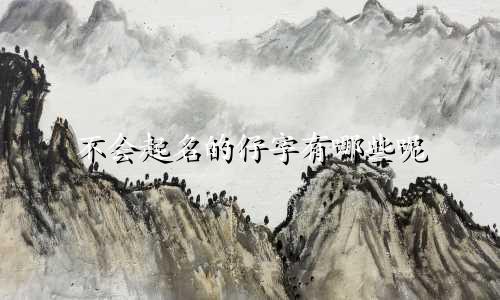 不会起名的仔字有哪些呢